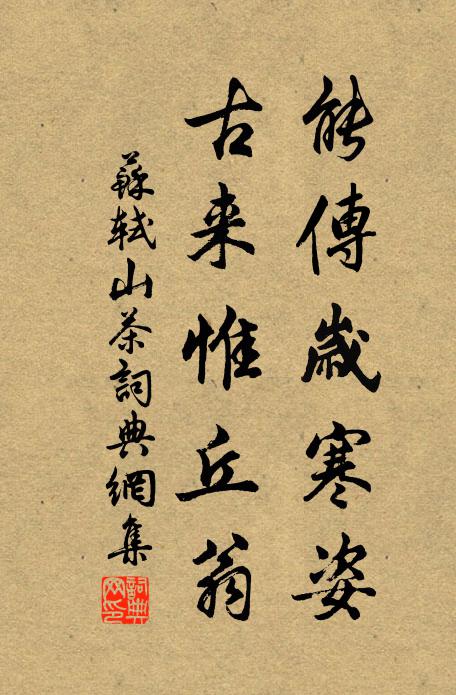 能傳歲寒姿
古来惟丘翁
蘇軾山茶詞典網集
詞典网印